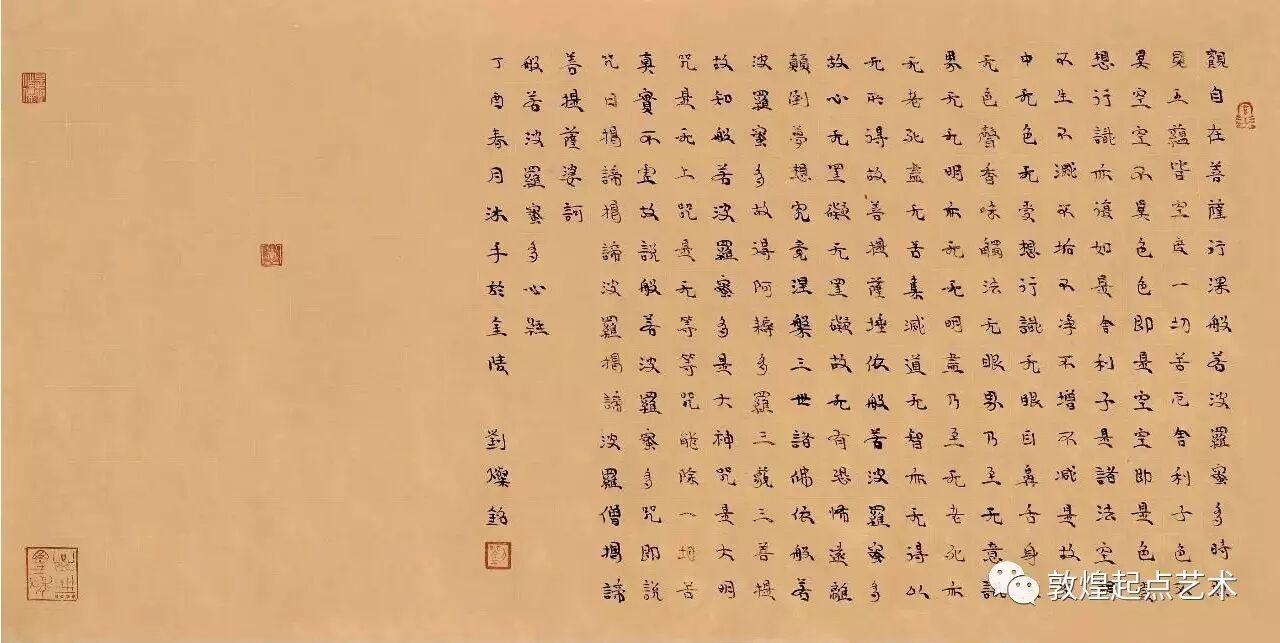 觀自在菩薩行深般若波羅蜜多時
見五蘊皆空度一切苦厄舍利子色
異空空不異色色即是空空即是色
想行識亦復如是舍利子是諸法空
不生不滅不垢不淨不增不減是故
中无色无受想行識无眼耳鼻舌身
无色聲香味觸法无眼界乃至无意識
界无无明亦无无明盡乃至无老死亦
无老死盡无苦集滅道无智亦无得以
无所得故菩提薩埵依般若波羅蜜多
故心无罣礙无罣礙故无有恐怖遠離
顛倒夢想究竟涅槃三世諸佛依般若
波羅蜜多故得阿耨多羅三藐三菩提
故知般若波羅蜜多是大神咒是大明
咒是无上咒是无等等咒能除一切苦
真實不虛故說般若波羅蜜多咒即說
咒曰揭諦揭諦波羅揭諦波羅僧揭諦
菩提薩婆訶
般若波羅蜜多心經
丁酉春月沐手於金陵 劉燦銘
劉
敦煌起点艺术